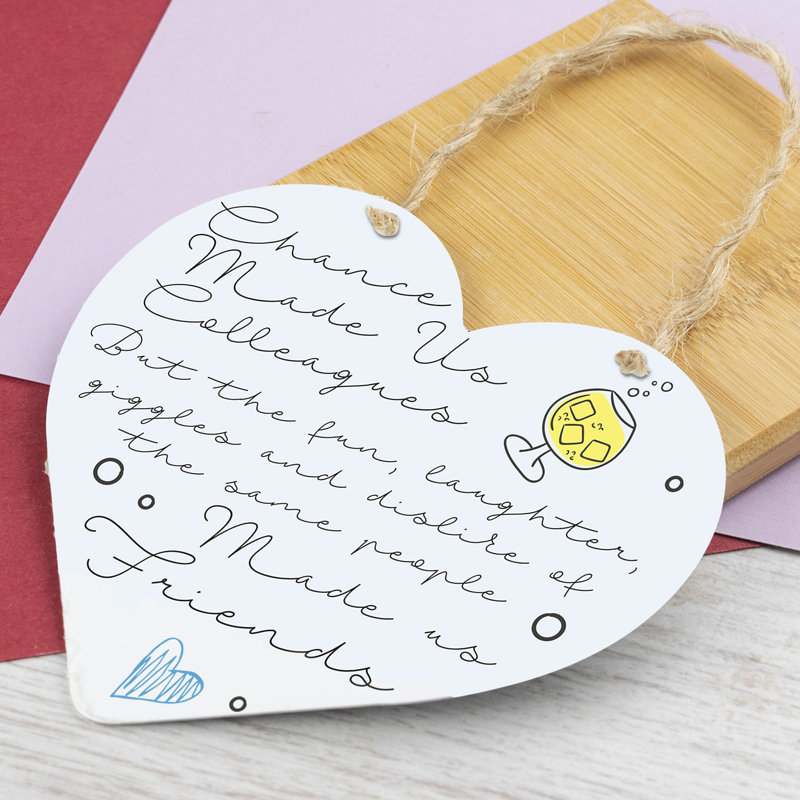 Chance
Made Us
Colleagues
But the fun, laughter,
giggles and dislike of
the same people
Made us
Friends